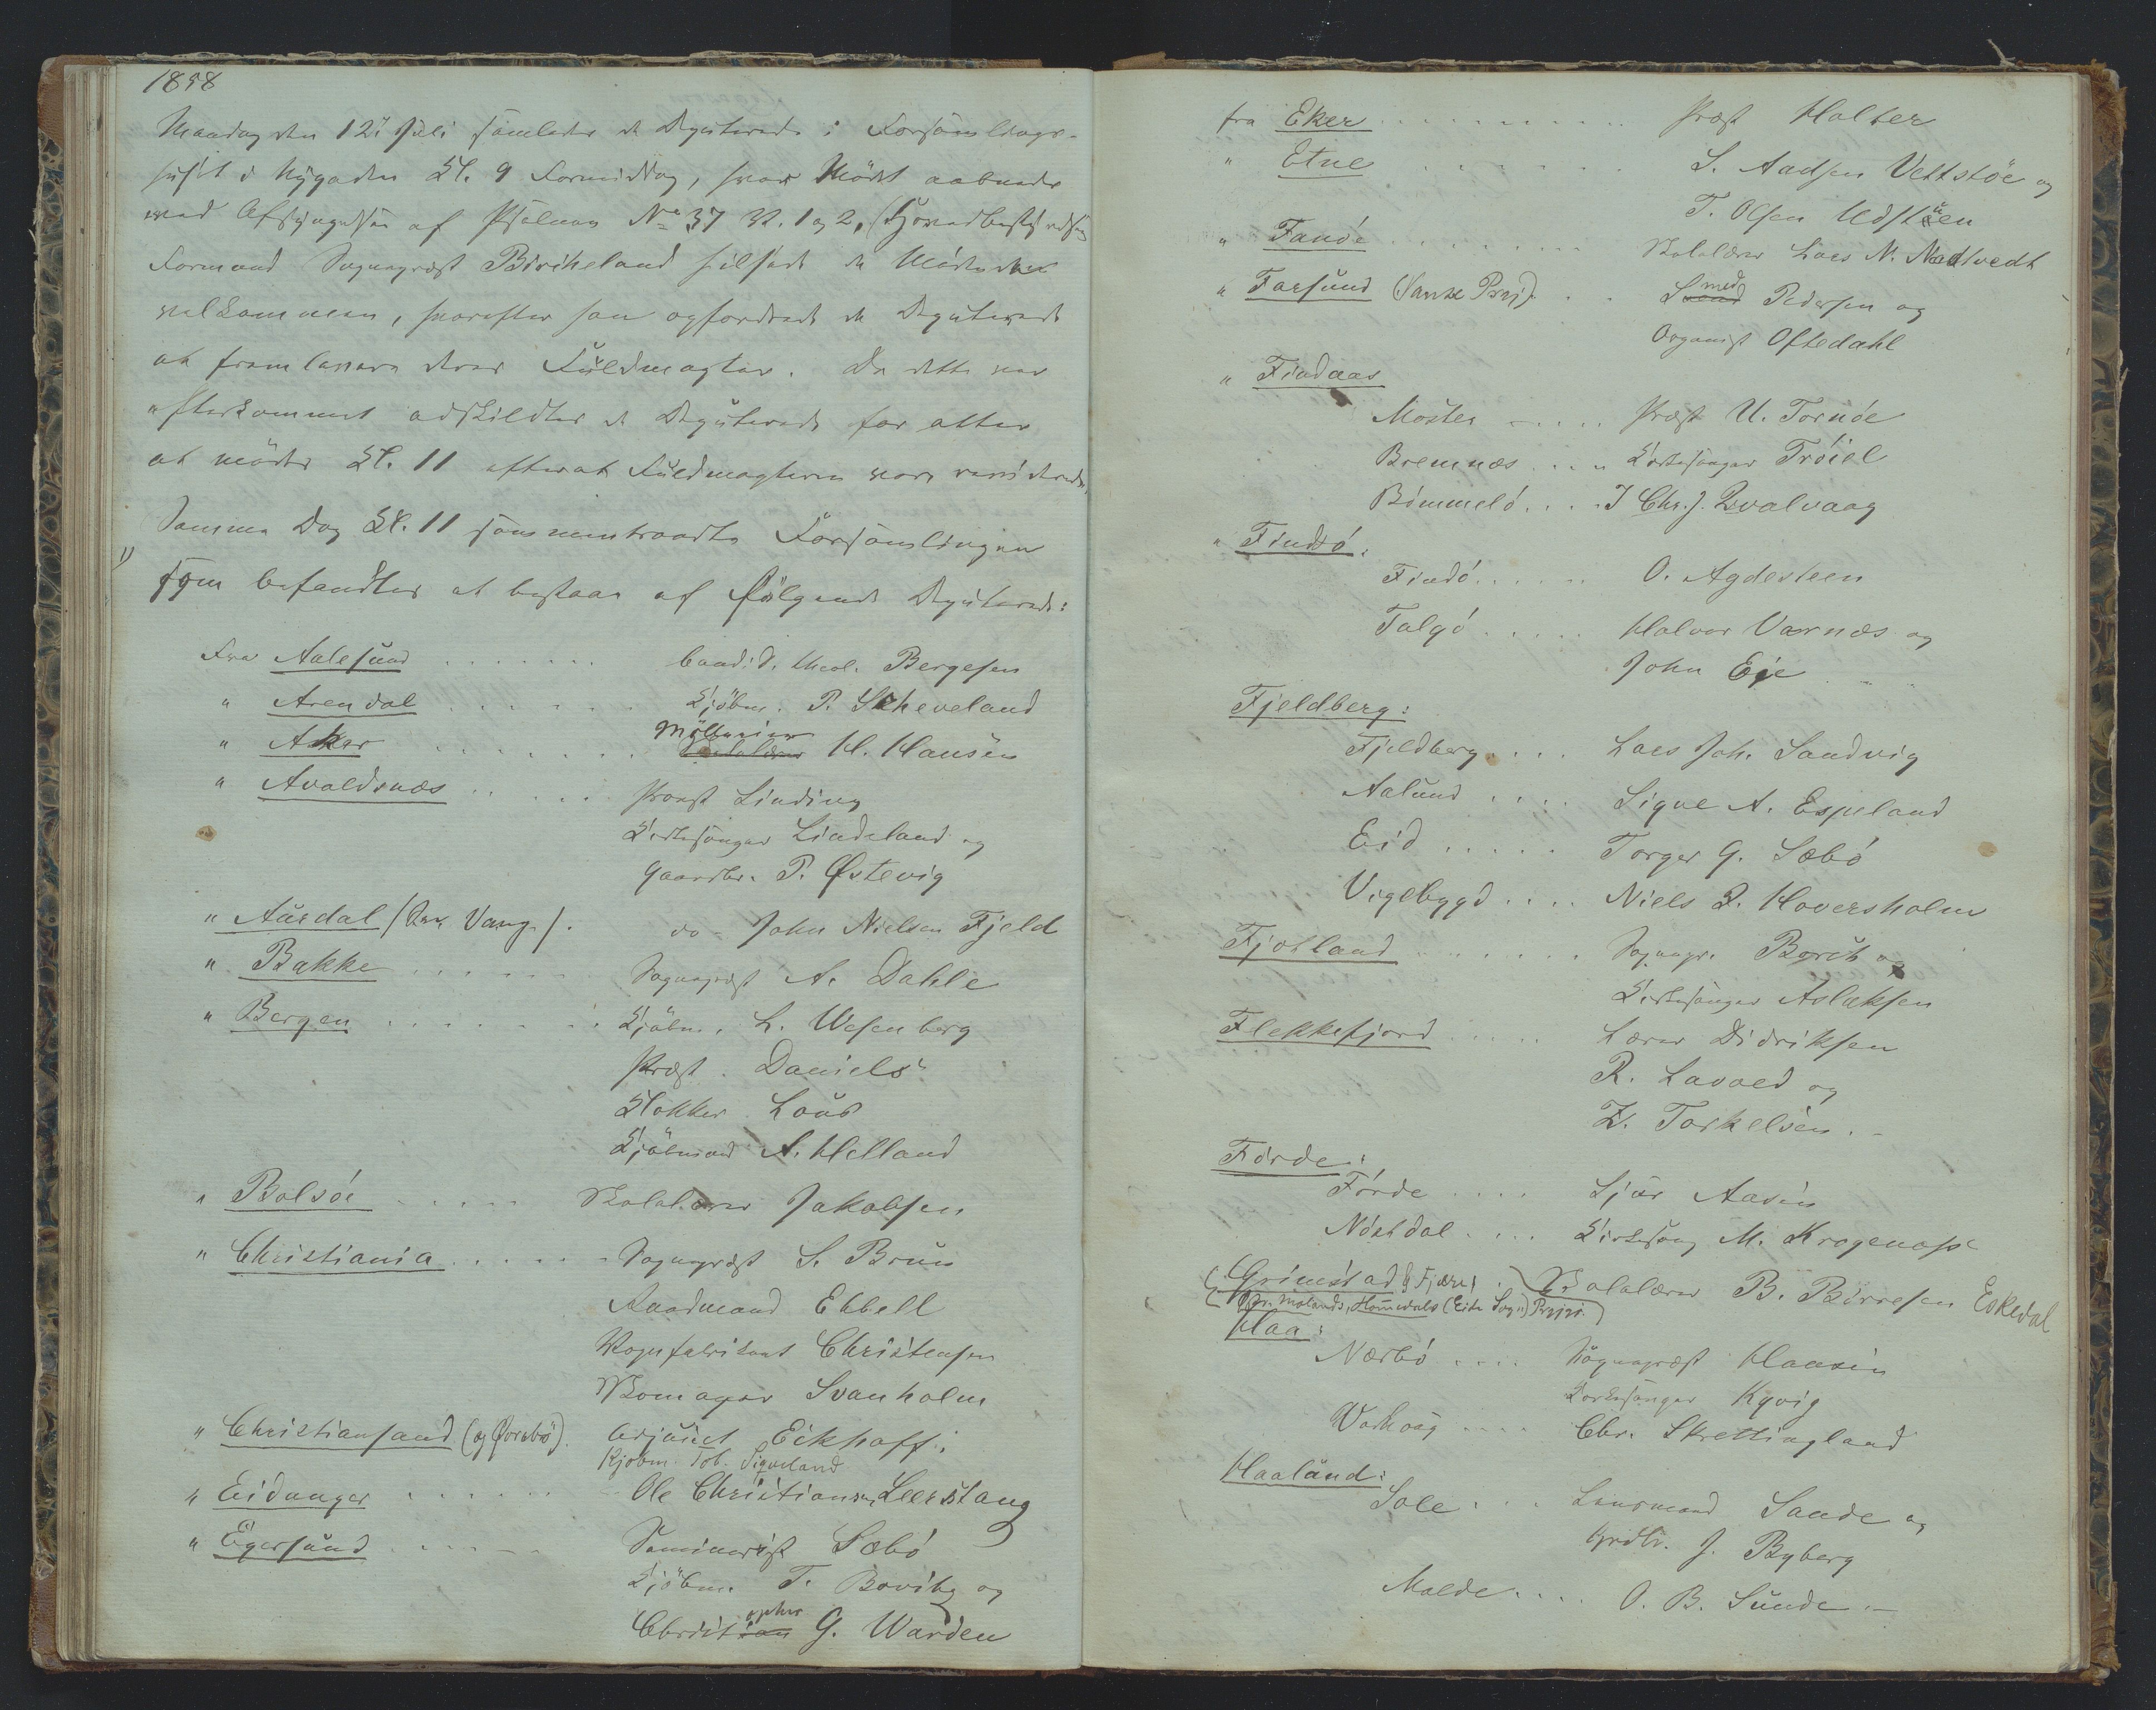 1858
Mandag den 12te Juli samledes de Deputerede i Forsamlings-
huset i Nygaden Kl. 9 Formiddag, hvor Mödet aabnedes
med Afsyngelsen af Psalmen No 37 V. 1 og 2, Hovedbestyrelsens
Formand Sognepræst Birkeland hilsede de Mödende
velkommen, hvorefter han opfordrede de Deputerede
at fremlevere deres Fuldmagter. Da dette var
efterkommet adskildtes de Deputerede for atter
at möde Kl. 11 efterat Fuldmagterne vare reviderede.
Samme Dag Kl. 11 sammentraadte Forsamlingen
som befandtes at bestaae af Følgende Deputerede:
Fra Aalesund . . . . . . . Candid. theol. Bergesen
" Arendal . . . . . . Kjöbm. P. Scheveland
" Asker . . . . . . Möllereier H. Hansen
" Avaldsnæs . . . . . Provst Linding
Kirkesanger Lindeland og
Gaardbr. P. Østevig
" Aurdal (Vang). do- John Nielsen Fjeld
" Bakke . . . . . . Sognepræst A. Dahle
" Bergen . . . . . . . Kjöbm. L. Wesenberg
Præst Daniels
Klokker Laus
Kjöbmand A. Helland
" Bolsöe . . . . . Skolelærer Jakobsen
" Christiania . . . . . Sognepræst S. Brun
Raadmand Ebbell
Vognfabrikant Christensen
Skomager Svanholm
" Christiansand (og Oddernes). Adjunct Eickhoff
Kjöbm. Tob. Siqveland
" Eidanger . . . . . . Ole Christiansen Leerstang
" Egersund . . . . . Seminarist Sæbö
Kjöbm. T. Boviig og
Christopher G. Warden
fra Eker . . . . . . . . . . . Præst Holter
" Etne . . . . . . . S. Aadsen Vettstöe og
T. Olsen Udstuen
" Fanöe . . . . . . . . Skolelærer Lars N. Nætvedt
" Farsund (Vanse Præj). . . Smed Pedersen og
Organist Oftedahl
" Findaas
Moster . . . . . Præst U. Tornöe
Bremnæs . . . . Kirkesanger Tröiel
Bömmelö . . . . J Chr. J. Qvalvaag
" Findö:
Findö . . . . . . O. Agdesteen
Talgö . . . . . Halvor Varnæs og
John Eje
Fjeldberg:
Fjeldberg . . . . Lars Joh. Sandvig
Aalund . . . . Signe A. Espeland
Eid . . . . . Torger G. Sæbö
Vigebygd . . . . Niels J. Haversholm
Fjotland . . . . . . . Sognepr. Borch og
Kirkesanger Aslaksen
Flekkefjord . . . . . Lærer Didriksen
R. Lavold og
Z. Torkelsen.
Förde:
Förde . . . . Sjur Aasen
Nöstdal . . . . Kirkesang M. Krogenæss
Grimstad & Fjære . Skolelærer B. Börresen Eskedal
Molands, Hommedals (Eide Sogn) Præj.
Haa:
Nærbö . . . . Sognepræst Hansen
Kirkesanger Kyvig
Varhoug . . . . Chr. Skrettingland
Haaland:
Sole . . . Lensmand Sande og
Grdbr. J. Byberg
Malde . . . . O. B. Sunde